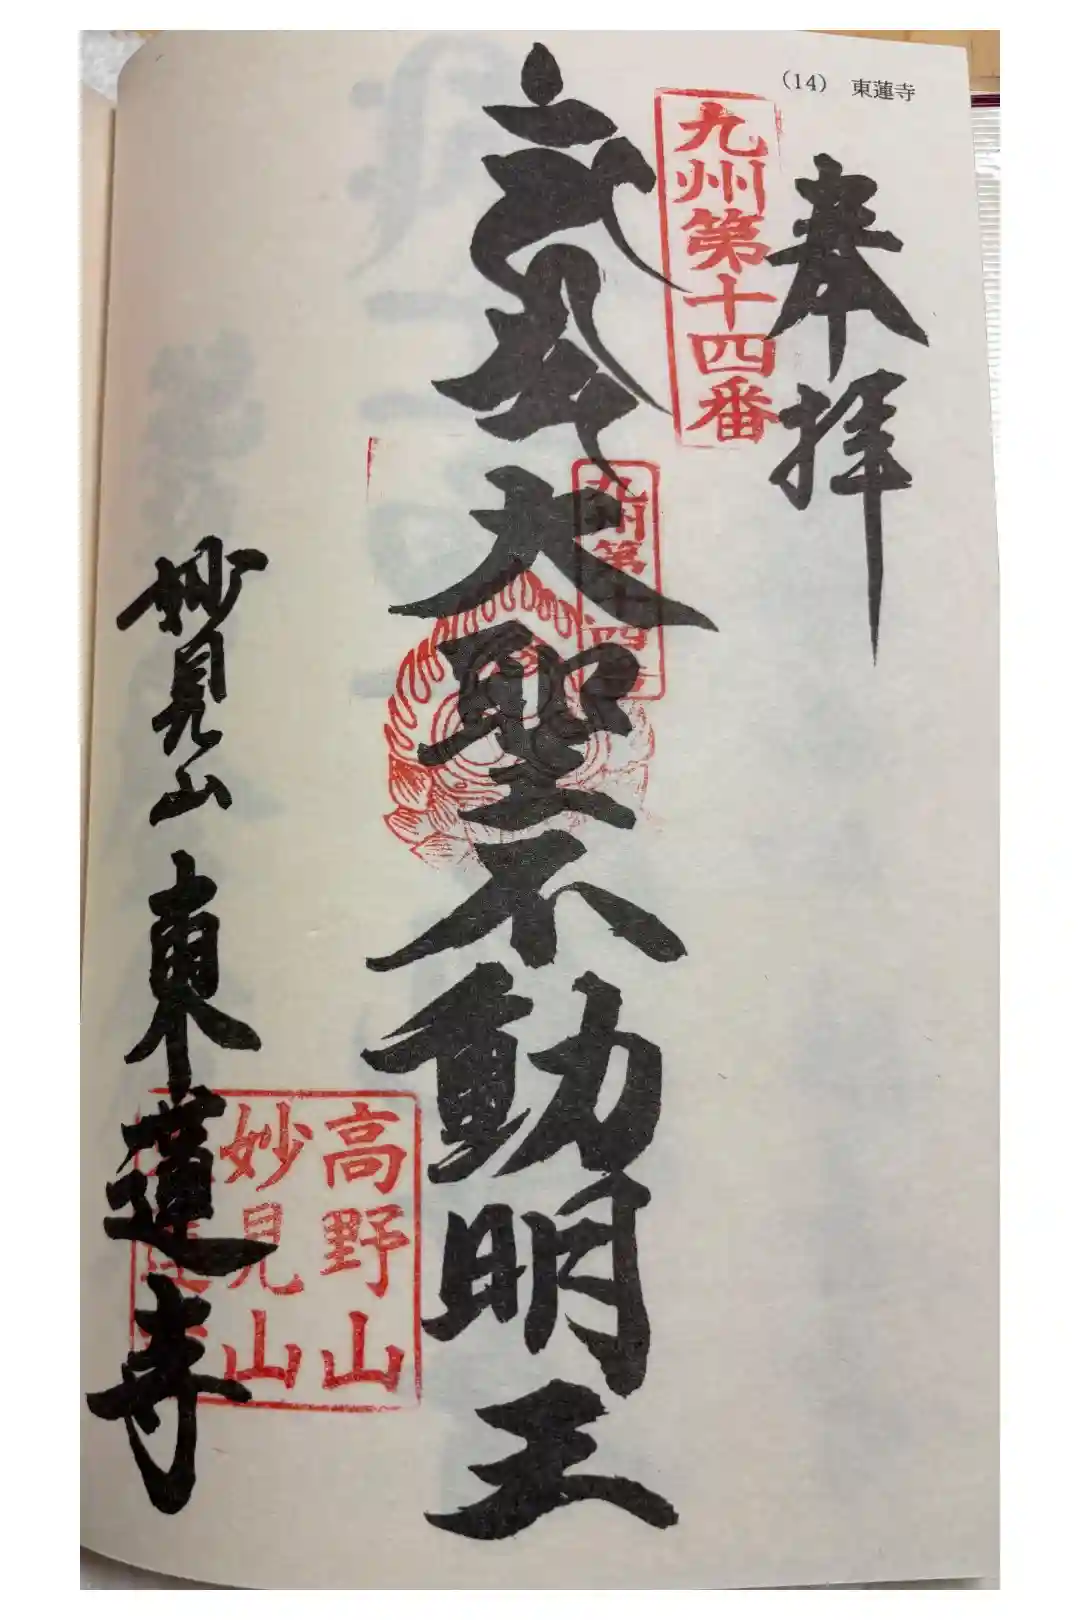 (14) 東蓮寺
奉拝
九州第十四番
九州第十四番
大聖不動明王
妙見山 東蓮寺
高野山
妙見山